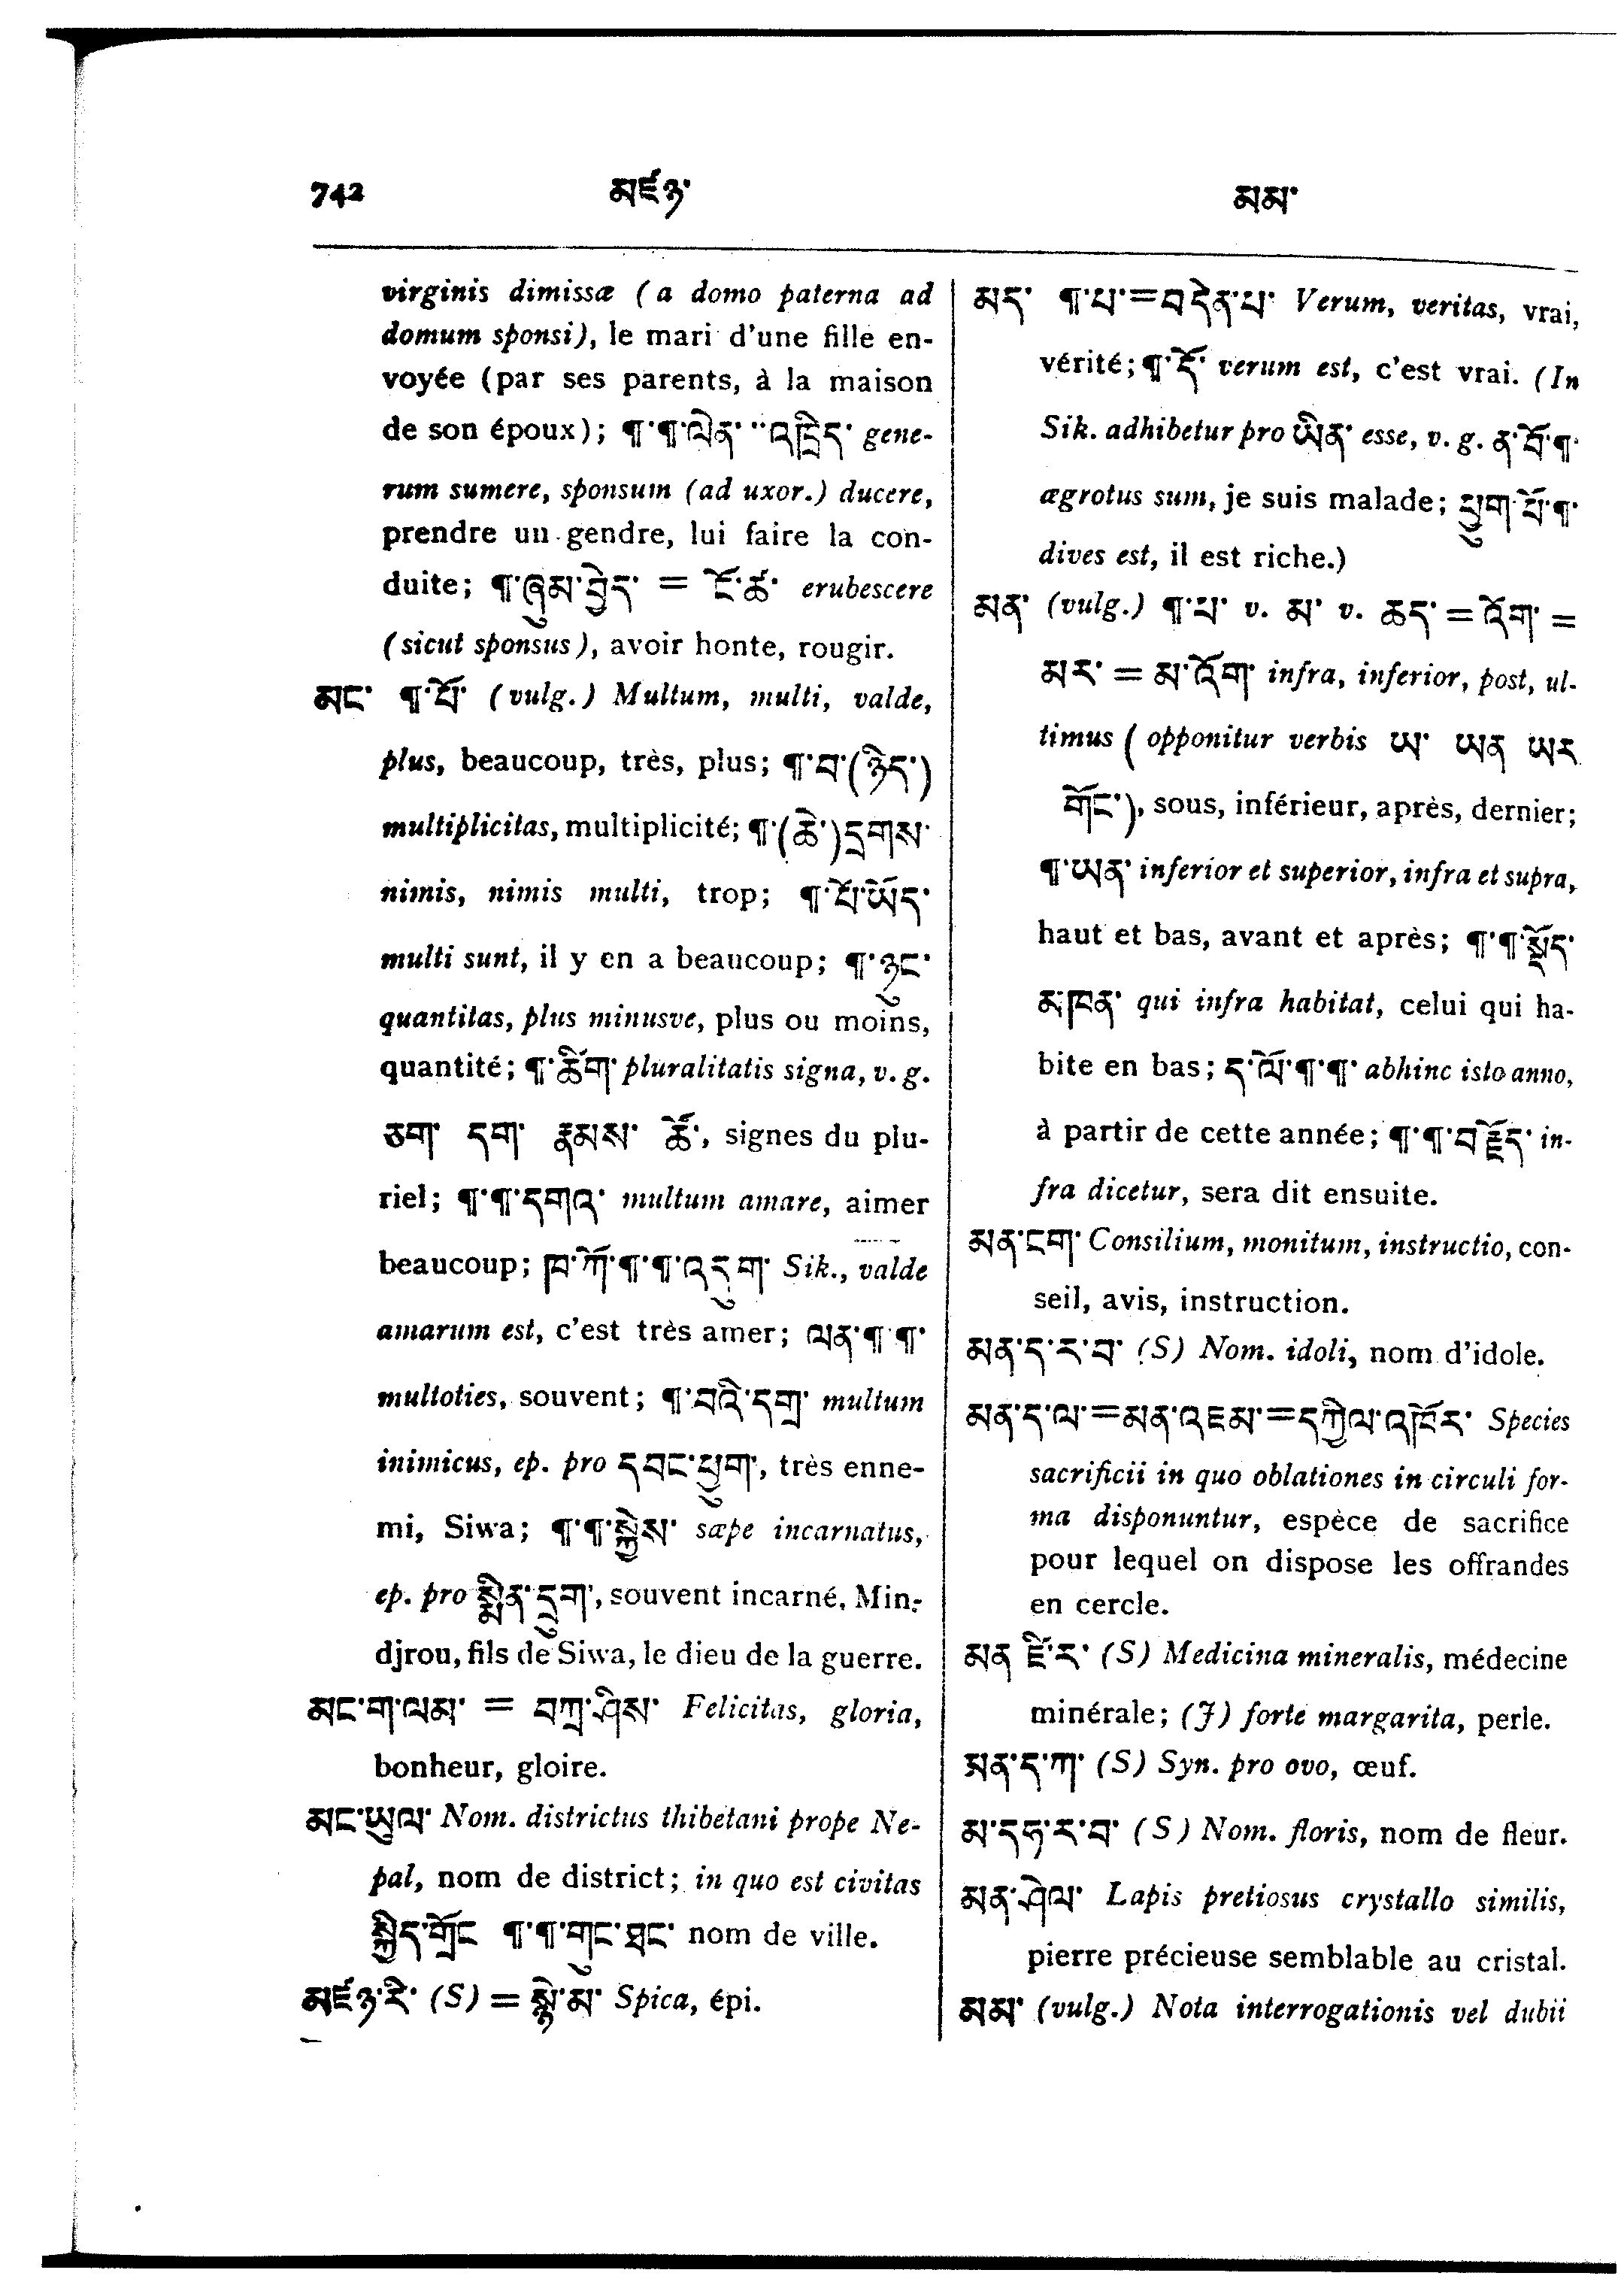 742
མཛཉ་
མམ་
virginis dimissæ (a domo paterna ad
domum sponsi), le mari d'une fille en-
voyée (par ses parents, à la maison
de son époux); ¶་¶་ལེན་ ་་འཁྲིད་ gene-
rum sumere, sponsum (ad uxor.) ducere,
prendre un gendre, lui faire la con-
duite; ¶་ཞུམ་བྱེད་ = ངོ་ཚ་ erubescere
(sicut sponsus), avoir honte, rougir.
མང་ ¶་པོ་ (vulg.) Multum, multi, valde,
plus, beaucoup, très, plus; ¶་བ་(ཉིད་)
multiplicitas, multiplicité; ¶་(ཆེ་)དྲགས་
nimis, nimis multi, trop; ¶་པོ་ཡོད་
multi sunt, il y en a beaucoup; ¶་ཉུང་
quantitas, plus minusve, plus ou moins,
quantité; ¶་ཚིག་ pluralitatis signa, v. g.
ཅག་ དག་ རྣམས་ ཚོ་, signes du plu-
riel; ¶་¶་དགའ་ multum amare, aimer
beaucoup; ཁ་ཀོ་¶་¶་འདུག་ Sik., valde
amarum est, c'est très amer; ལན་¶་¶་
multoties, souvent; ¶་བའི་དགྲ་ multum
inimicus, ep. pro དབང་ཕྱུག་, très enne-
mi, Siwa; ¶་¶་སྐྱེས་ sæpe incarnatus,
ep. pro སྨིན་དྲུག་, souvent incarné, Min-
djrou, fils de Siwa, le dieu de la guerre.
མང་ག་ལམ་ = བཀྲ་ཤིས་ Felicitas, gloria,
bonheur, gloire.
མང་ཡུལ་ Nom. districtus thibetani prope Ne-
pal, nom de district; in quo est civitas
སྐྱིད་གྲོང ¶་¶་གུང་ཐང་ nom de ville.
མཛཉ་རི་ (S) = སྙེ་མ་ Spica, épi.
མད་ ¶་པ་=བདེན་པ་ Verum, veritas, vrai,
vérité; ¶་དོ་ verum est, c'est vrai. (In
Sik. adhibetur pro ཡིན་ esse, v. g. ན་བོ་¶་
ægrotus sum, je suis malade; ཕྱུག་པོ་¶་
dives est, il est riche.)
མན་ (vulg.) ¶་པ་ v. མ་ v. ཆད་ = འོག་ =
མར་ = མ་འོག་ infra, inferior, post, ul-
timus (opponitur verbis ཡ་ ཡན ཡར
གོང་), sous, inférieur, après, dernier;
¶་ཡན་ inferior et superior, infra et supra,
haut et bas, avant et après; ¶་¶་སྡོད་
མཁན་ qui infra habitat, celui qui ha-
bite en bas; ད་ལོ་¶་¶་ abhinc isto anno,
à partir de cette année; ¶་¶་བརྗོད་ in-
fra dicetur, sera dit ensuite.
མན་ངག་ Consilium, monitum, instructio, con-
seil, avis, instruction.
མན་ད་ར་བ་ (S) Nom. idoli, nom d'idole.
མན་ད་ལ་=མན་འཇམ་=དཀྱིལ་འཁོར་ Species
sacrificii in quo oblationes in circuli for-
ma disponuntur, espèce de sacrifice
pour lequel on dispose les offrandes
en cercle.
མན ཛི་ར་ (S) Medicina mineralis, médecine
minérale; (J) forte margarita, perle.
མན་ད་ཀ་ (S) Syn. pro ovo, œuf.
མ་དཧ་ར་བ་ (S) Nom. floris, nom de fleur.
མན་ཤེལ་ Lapis pretiosus crystallo similis,
pierre précieuse semblable au cristal.
མམ་ (vulg.) Nota interrogationis vel dubii